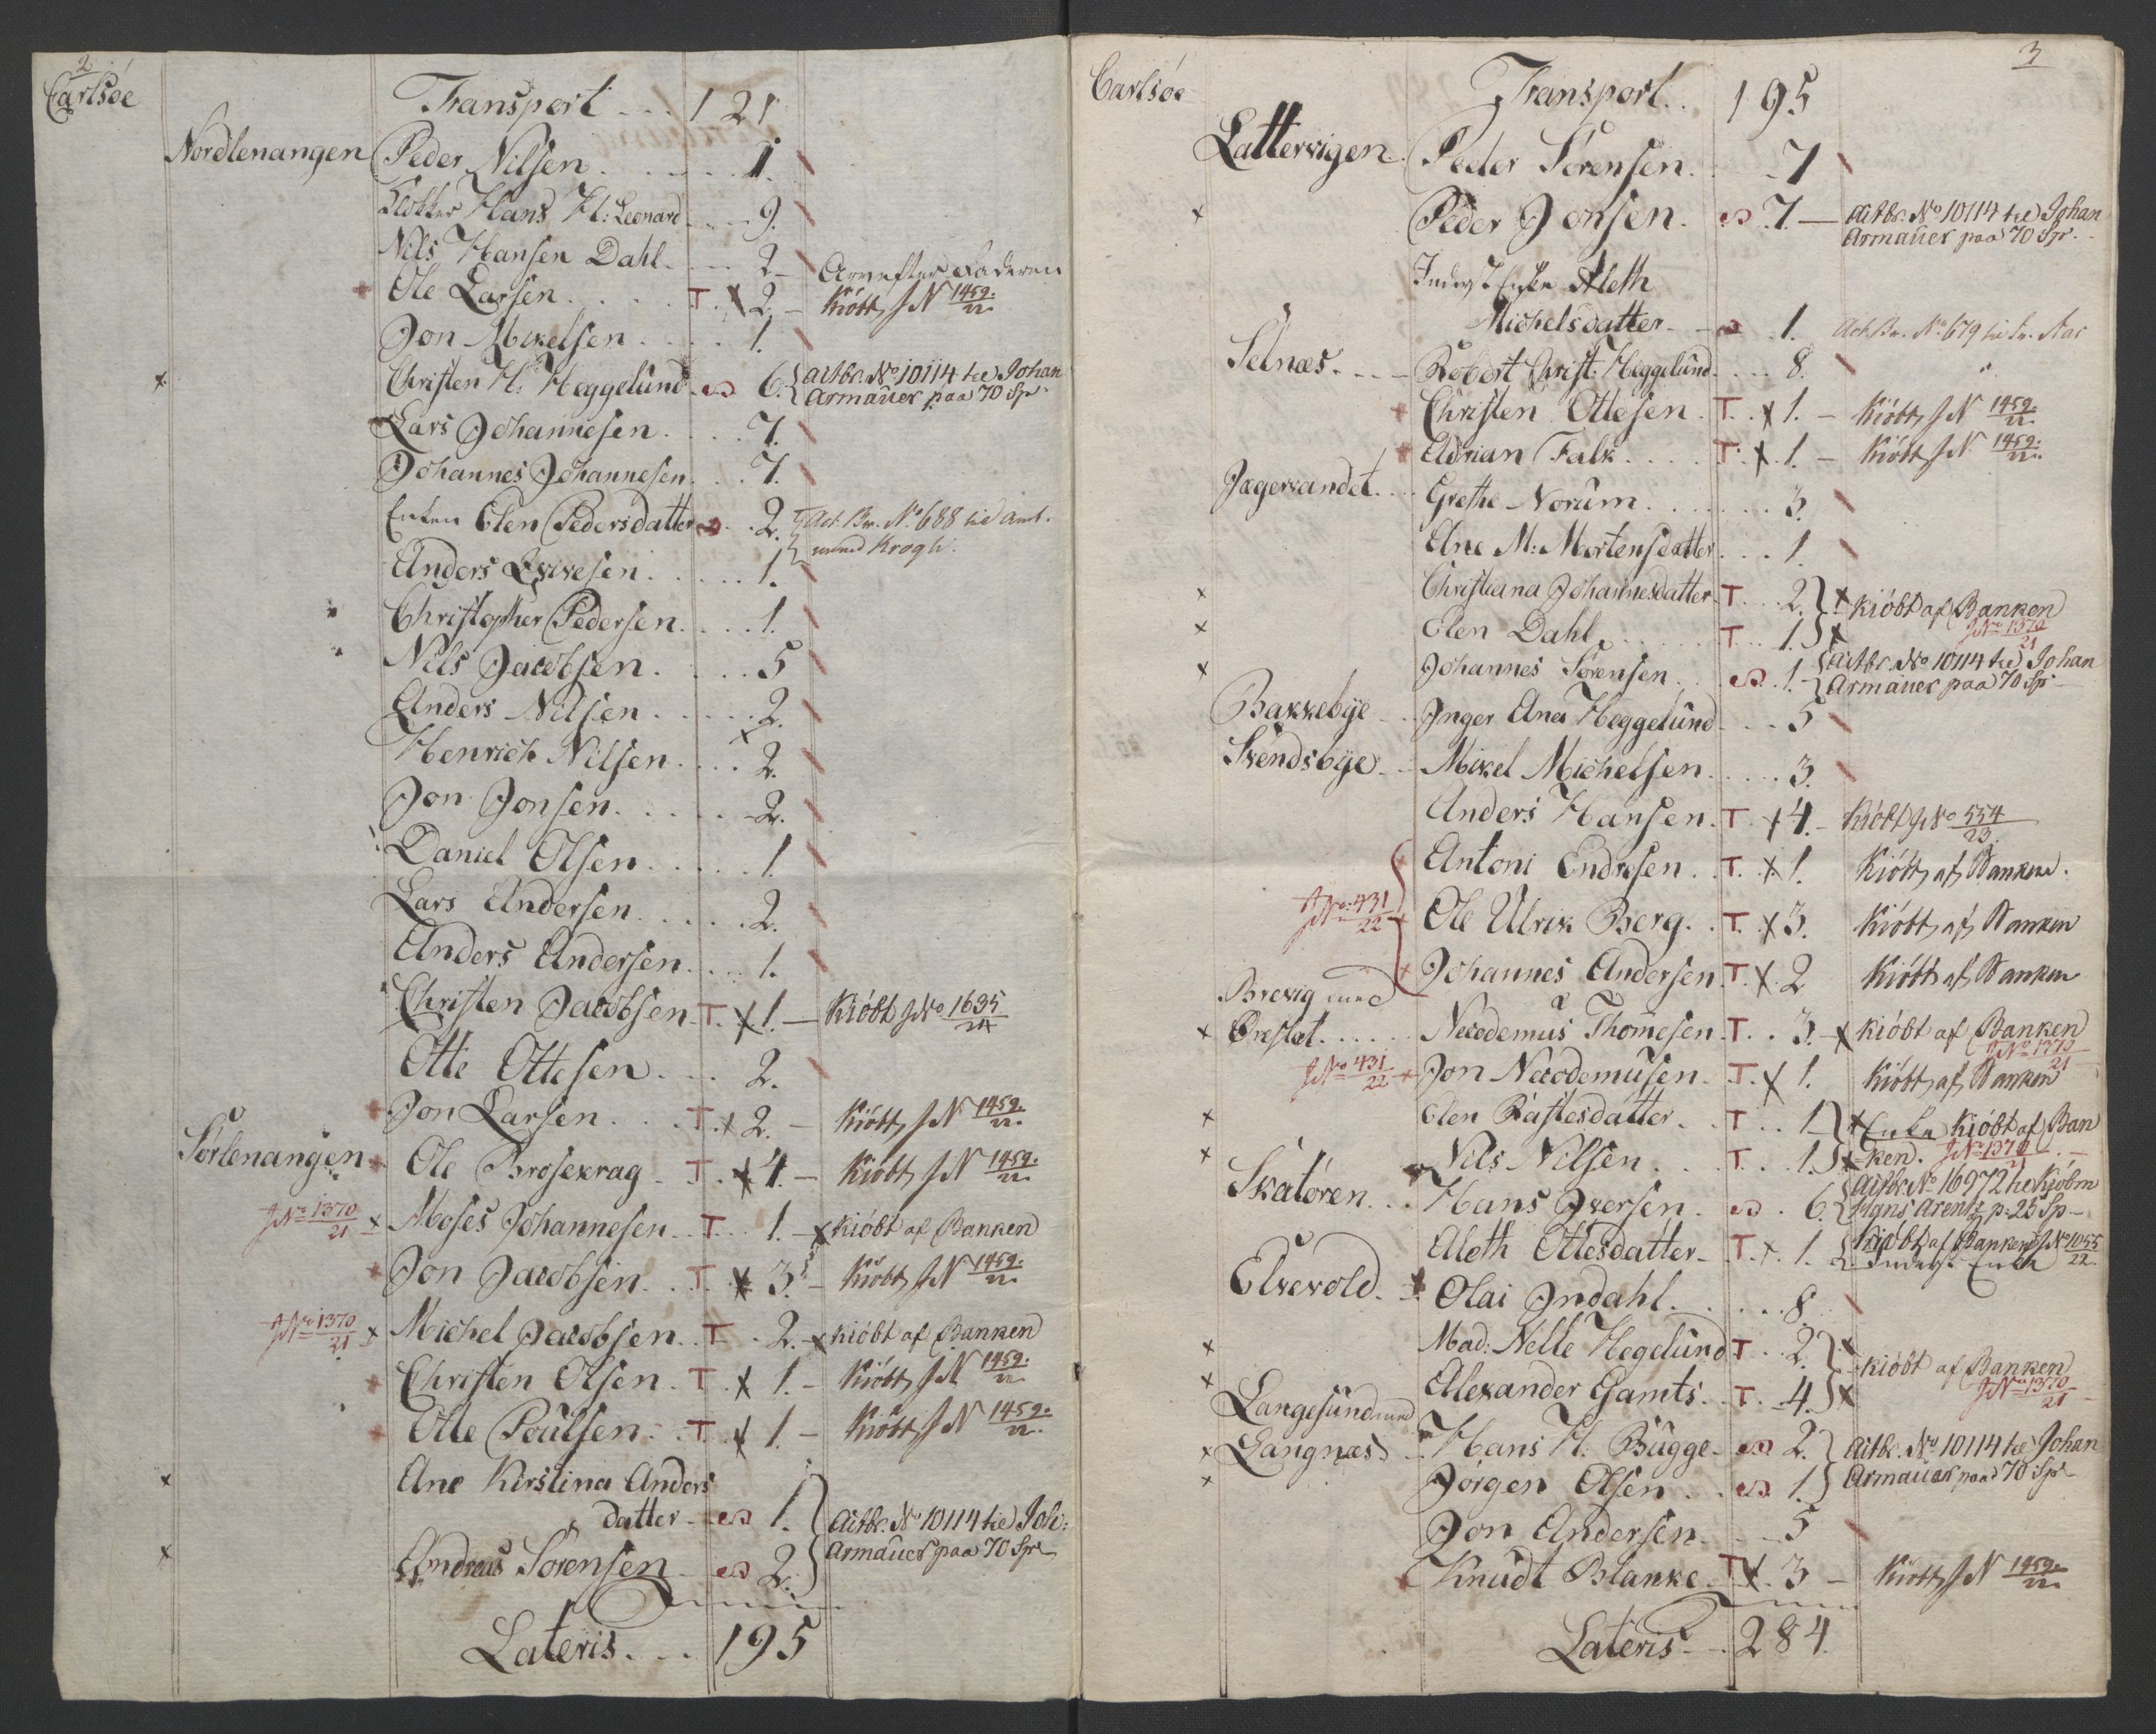 2
Carlsøe
Transport . . . 121
Nordlenangen Peder Nilsen . . . . . . 1.
Klokker Hans H: Leonard . . . 9.
Nils Hansen Dahl . . . 2 – Arv efter Faderen
Ole Larsen . . . . T. x 2. – Kiöbt J N 1459/22
Jon Mikelsen . . . . 1.
x Christen H: Heggelund . . 6. { Actbr. No 10114 til Johan
Armauer paa 70 Spr
Lars Johannesen . . . . 7.
Johannes Johannesen . . . 7.
Enken Elen Pedersdatter . . 2. { Act. Br. No. 688 til Amt-
mand Krogh.
Anders Qvivesen . . . . . 1.
Christopher Pedersen . . . . 1.
Nils Jacobsen . . . . 5
Anders Nilsen . . . . . 2.
Henrich Nilsen . . . . 2.
Jon Jonsen . . . . . 2.
Daniel Olsen . . . . . 1.
Lars Andersen . . . . . 2.
Anders Andersen . . . . 1.
Christen Jacobsen . T. x 1. – Kiöbt J No 1635/24
Otte Ottesen . . . 2.
Jon Larsen . . . . T. x 2. – Kiöbt J N 1459/22
Sörlenangen Ole Brosekrag . T. x 4. – Kiöbt J N 1459/22
J No 1370/21 x Moses Johannesen . . T . . 1. – x kiöbt af Banken
Jon Jacobsen . . . T. x 3. – Kiöbt J N 1459/22
J No 1370/21 x Michel Jacobsen . . T . . 2. – x kiöbt af Banken
Christen Olsen . T. x 1. – Kiöbt J N 1459/22
Olle Poulsen . . T. x 1. – Kiöbt J N 1459/22
x Ane Kirstina Anders
datter . . 1. } Actbr. No 10114 til Joh:
x Andreas Sörensen . . 2. } Armauer paa 70 Spr
Lateris . . . 195
3
Carlsøe
Transport . . 195
Lattervigen Peder Sörensen . . 7
x Peder Jonsen . . 7. – Actbr. No 10114 til Johan
Armauer paa 70 Spr.
Inderst Enke Aleth
Michelsdatter . . 1. Act Br. No. 679 til
Selnæs . . . Robert Christ: Heggelund . . . 8.
Christen Ottesen . T. . x 1. – Kiöbt J N 1459/22
Adrian Falk . . . . T. . x . 1. – Kiöbt J N 1459/22
Jægervandet . . . Grethe Norum . . . . . . 3.
Ane M: Mortensdatter . . . 1.
x Christiana Johannesdatter . T . . 2. } x kiöbt af Banken
x Elen Dahl . . . . . T . . 1. } x J No 1370/21
x Johannes Sörensen . . . 1. { Actbr. No 10114 til Johan
Armauer paa 70 Spr
Bakkebÿe . . Inger Ana Heggelund . . . 5
Svendsbÿe . . Mikel Michelsen . . . . 3.
Anders Hansen . T . x 4. – Kiöbt J No 554/23
Antoni Endresen . . T. . x 1. Kiöbt af Banken.
J No 431/22 Ole Ulrik Berg . . T. . x 3. Kiöbt af Banken
Johannes Andersen T. x . 2 Kiöbt af Banken
Brevig med
x Ørestet . . . . . Necodemus Thomesen . T . . 3. – x kiöbt af Banken
J No 1370/21
J No 431/22 Jon Necodemusen . T. . x 1. Kiöbt af Banken
x Elen Rastesdatter . . T . . 1. } x Enke kiöbt af Ban
x Nils Nilsen . . . T . . 1. } x ken. J No 1370/21
Skatören . . . Hans Iversen . . . 6. { Actbr. No 16972 til Kjöbm
Mgns Arentz p: 25 Sp –
Aleth Ottesdatter . . T. . x . 1. { kiöbt af Banken J No 1055/22
Inderst Enke
Elvevold . . Olai Indahl . . . . . 8.
x Mad: Nelle Hegelund T . . 2. } x
kiöbt af Banken
x Alexander Gamts . . T . . 4. } x J No 1370/21
Langesund med
x Gangnæs . . Hans H: Bugge . . 2. } Actbr. No 10114 til Johan
x Jörgen Olsen . . 1. } Armauer paa 70 Spr
Jon Andersen . . . 5
Knudt Blanke . T x . 3 – Kiöbt J N 1459/22
Lateris . . 284.